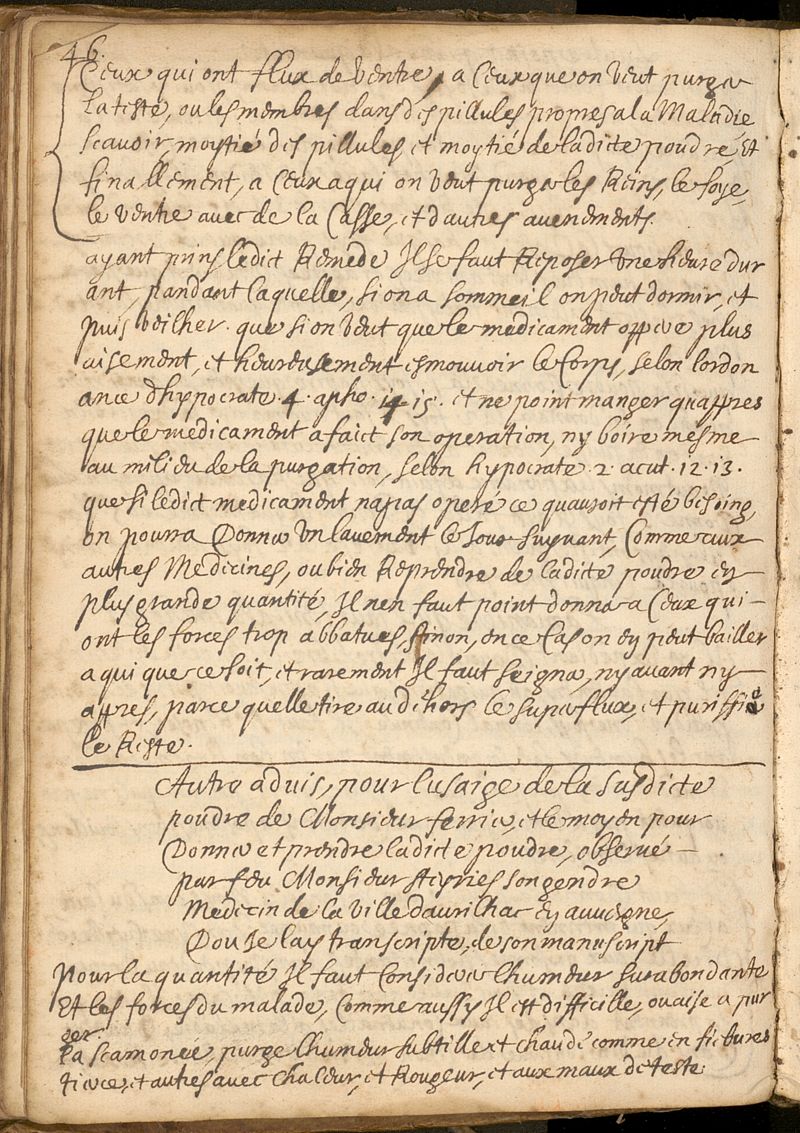 46.
Ceux qui ont flux de ventre, a Ceux que on veut purger
La teste, ou les membres dans des pillules propres a la Maladie
Scavoir, moytié des pillules et moytié de ladicte poudre, Et
finallement, a Ceux a qui on veut purger les Reins, le foye,
le ventre avec de la Casse, et d'autres
ayant prins ledict Remede Il se faut Reposer une heure dur
ant, pandant laquelle, si on a sommeil on peut dormir, et
puis veilher. que si on veut que le medicament opere plus
aisement, et heureusement esmouvoir le Corps, selon lordon
ance dhypocrate. 4. apho. 14 15. et ne point manger quappres
que le medicament a faict son operation, ny boire mesme
au milieu de la purgation, selon hypocrate. 2. acut. 12. 13.
que si ledict medicament napas operé ce quauroit esté besoing,
on pourra Donner un lavement le Jour suyvant, Comme aux
autres Medicines, ou bien Reprendre de ladicte poudre en
plus grande quantité, Il nen faut point donner a Ceux qui
ont les forces trop abbatues, sinon, en ce Cas on en peut bailler
a qui que ce soit, et rarement Il faut seigner, ny avant ny
appres, parce quelle tire au dehors le superflux, et puriffie
le Reste.
Autre advis, pour lusaige de la susdicte
poudre de Monsieur ferrier, et le moyen pour
Donner et prendre ladicte poudre, observé
par feu Monsieur son gendre
Medecin de la ville daurilhac en auvergne,
Dou Je lay transcripte, de son manuscript
Pour la quantité Il faut Considerer lhumeur surabondante
Et les forces du malade, Comme aussy Il est difficille, ou aise a pur
ger.
La scamonee, purge lhumeur subtille et chaude comme en fiebvres
tierce, et autres avec chaleur, et Rougeur, et aux maux de teste.